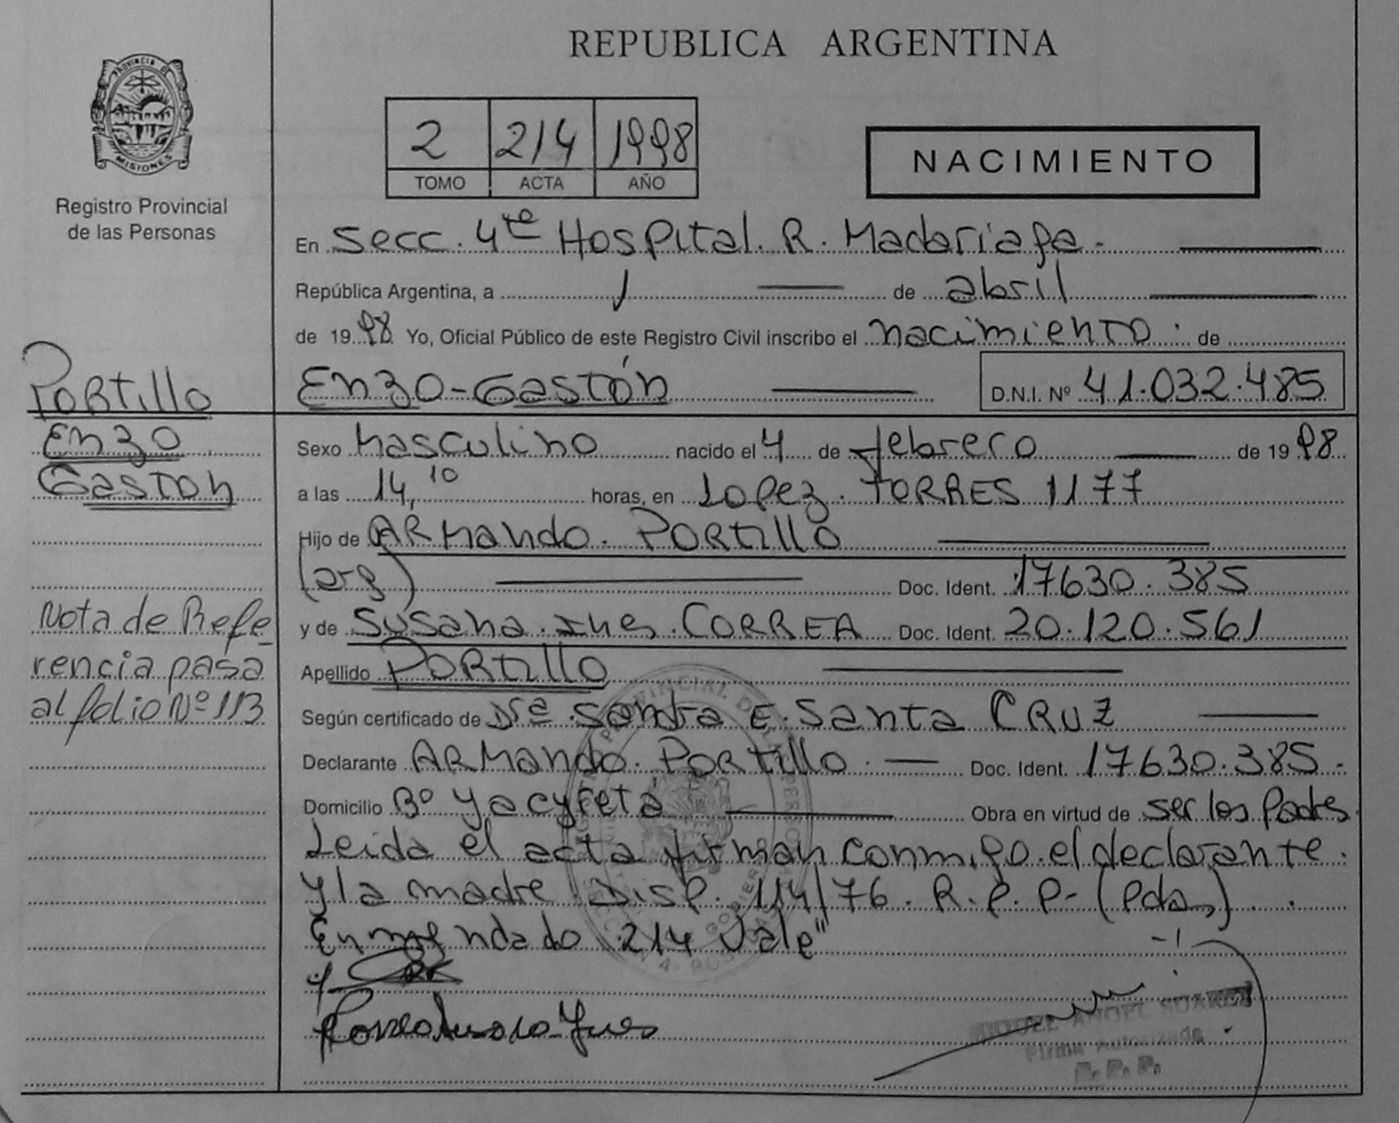 REPUBLICA ARGENTINA
PROVINCIA DE
MISIONES
Registro Provincial
de las Personas
2 214 1998
TOMO ACTA AÑO
NACIMIENTO
En Secc. 4te Hospital. R. Madariaga.
República Argentina, a 1 de abril
de 1998 Yo, Oficial Público de este Registro Civil inscribo el nacimiento. de
Enzo-Gastón D.N.I. Nº 41.032.485
Portillo
Enzo
Gaston
Sexo Masculino nacido el 4 de febrero de 1998
a las 14,10 horas, en Lopez. TORRES 1177
Hijo de ARMando. PORtillo
(arg) Doc. Ident. 17630.385
y de Susana. Ines. CORREA Doc. Ident. 20.120.561
Apellido PORtillo
Nota de Refe-
rencia pasa
al folio Nº 113
Según certificado de Dra. Sandra E. Santa CRUZ
Declarante ARMando. PORtillo. Doc. Ident. 17630.385.
Domicilio Bº Yacyretá Obra en virtud de ser los Padres
Leida el acta firman conmigo. el declarante.
y la madre Disp. 114/76. R.P.P-
Enmendado 214 Vale"
MIGUEL ANGEL SUAREZ
Firma Autorizada
R. P. P.